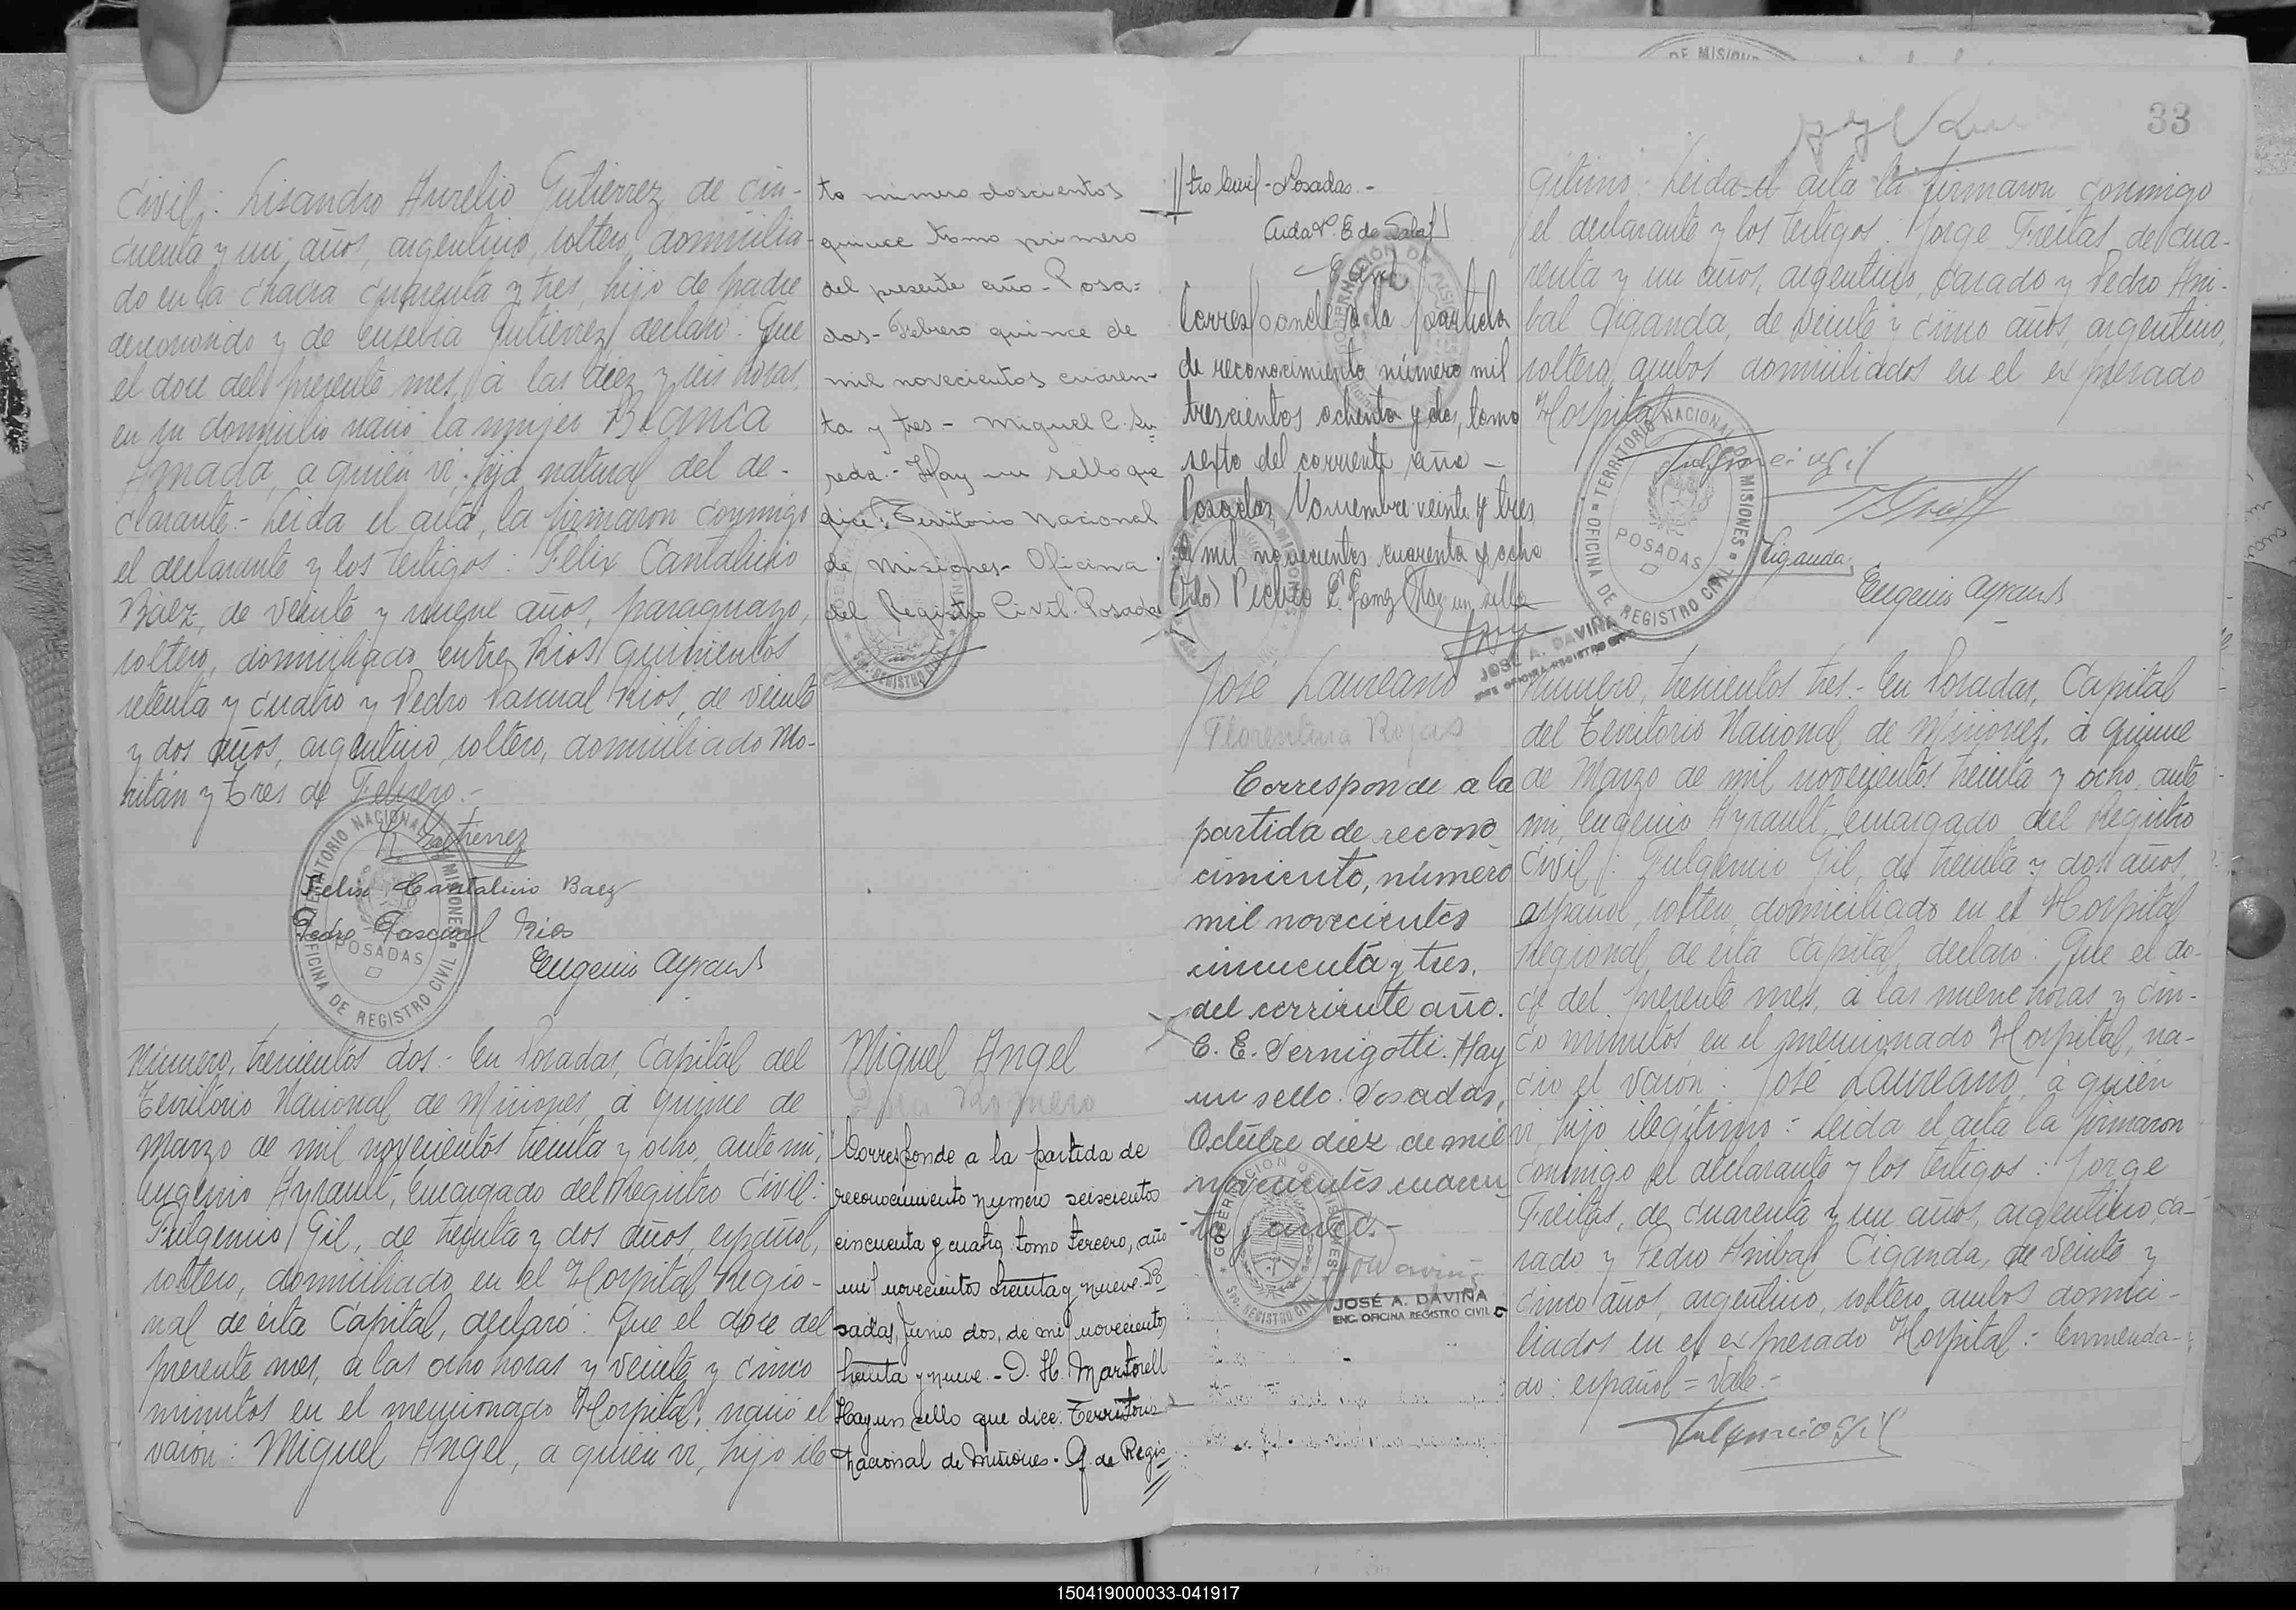 Civil: Lisandro Aurelio Gutierrez, de cin-
cuenta y un años, argentino, soltero, domicilia-
do en la chacra cuarenta y tres, hijo de padre
desconocido y de Eusebia Gutierrez, declaró: Que
el doce del presente mes, a las diez y seis horas,
en su domicilio nació la mujer Blanca
Amada, a quién vi, hija natural del de-
clarante.- Leida el acta, la firmaron conmigo
el declarante y los testigos: Felix Cantalicio
Báez, de veinte y nueve años, paraguayo,
soltero, domiciliado entre Rios quinientos
setenta y cuatro y Pedro Pascual Rios, de veinte
y dos años, argentino, soltero, domiciliado
y Tres de Febrero.-
Gutierrez
Felix Cantalicio Baez
Pedro Pascual Rios
Eugenio Ayrault
TERRITORIO NACIONAL DE MISIONES
POSADAS
OFICINA DE REGISTRO CIVIL
Número, trescientos dos.- En Posadas, Capital del
Territorio Nacional de Misiones, á quince de
Marzo de mil novecientos treinta y ocho, ante mi,
Eugenio Ayrault, Encargado del Registro Civil:
Fulgencio Gil, de treinta y dos años, español,
soltero, domiciliado en el Hospital Regio-
nal de ésta Capital, declaró: Que el doce del
presente mes, a las ocho horas y veinte y cinco
minutos en el mencionado Hospital, nació el
varón: Miguel Angel, a quién vi, hijo ile
to número doscientos
quince tomo primero
del presente año - Posa=
das - Febrero quince de
mil novecientos cuaren-
ta y tres - Miguel C. Su
reda.- Hay un sello que
dice: Territorio Nacional
de Misiones - Oficina
del Registro Civil. Posadas
Miguel Angel
Romero
Corresponde a la partida de
reconocimiento número seiscientos
cincuenta y cuatro, tomo tercero, año
mil novecientos treinta y nueve. Po
sadas, Junio dos, de mil novecientos
treinta y nueve.- D. H. Martorell
Hay un sello que dice: Territorio
Nacional de Misiones. Of. de Regis
//tro Civil - Posadas.-
Corresponde a la partida
de reconocimiento número mil
trescientos ochenta y dos, tomo
sexto del corriente año -
Posadas Noviembre veinte y tres
de mil novecientos cuarenta y ocho
Hay un sello
JOSE A. DAVIÑA
José Laureano
Florentina Rojas
Corresponde a la
partida de recono
cimiento, número
mil novecientos
cincuenta y tres,
del corriente año.
C. E. Pernigotti. Hay
un sello. Posadas,
Octubre diez de mil
novecientos cuaren
JOSÉ A. DAVIÑA
ENC. OFICINA REGISTRO CIVIL
DE MISIONES
33
gítimo.- Leida el acta la firmaron conmigo
el declarante y los testigos: Jorge Freitas, de cua-
renta y un años, argentino, casado y Pedro Ani-
bal Ciganda, de veinte y cinco años, argentino,
soltero, ambos domiciliados en el expresado
Hospital
TERRITORIO NACIONAL DE MISIONES
POSADAS
OFICINA DE REGISTRO CIVIL
Ciganda
Eugenio Ayrault
Número, trescientos tres.- En Posadas, Capital
del Territorio Nacional de Misiones, á quince
de Marzo de mil novecientos treinta y ocho, ante
mi, Eugenio Ayrault, Encargado del Registro
Civil: Fulgencio Gil, de treinta y dos años,
español, soltero, domiciliado en el Hospital
Regional de ésta Capital, declaró: Que el do-
ce del presente mes, a las nueve horas y cin-
co minutos en el mencionado Hospital, na-
ció el varón: José Laureano, a quién
vi, hijo ilegítimo:- Leida el acta la firmaron
conmigo el declarante y los testigos: Jorge
Freitas, de cuarenta y un años, argentino, ca-
sado y Pedro Anibal Ciganda, de veinte y
cinco años, argentino, soltero, ambos domici-
liados en el expresado Hospital:- Enmenda-
do: español = Vale.-
Fulgencio Gil
150419000033-041917